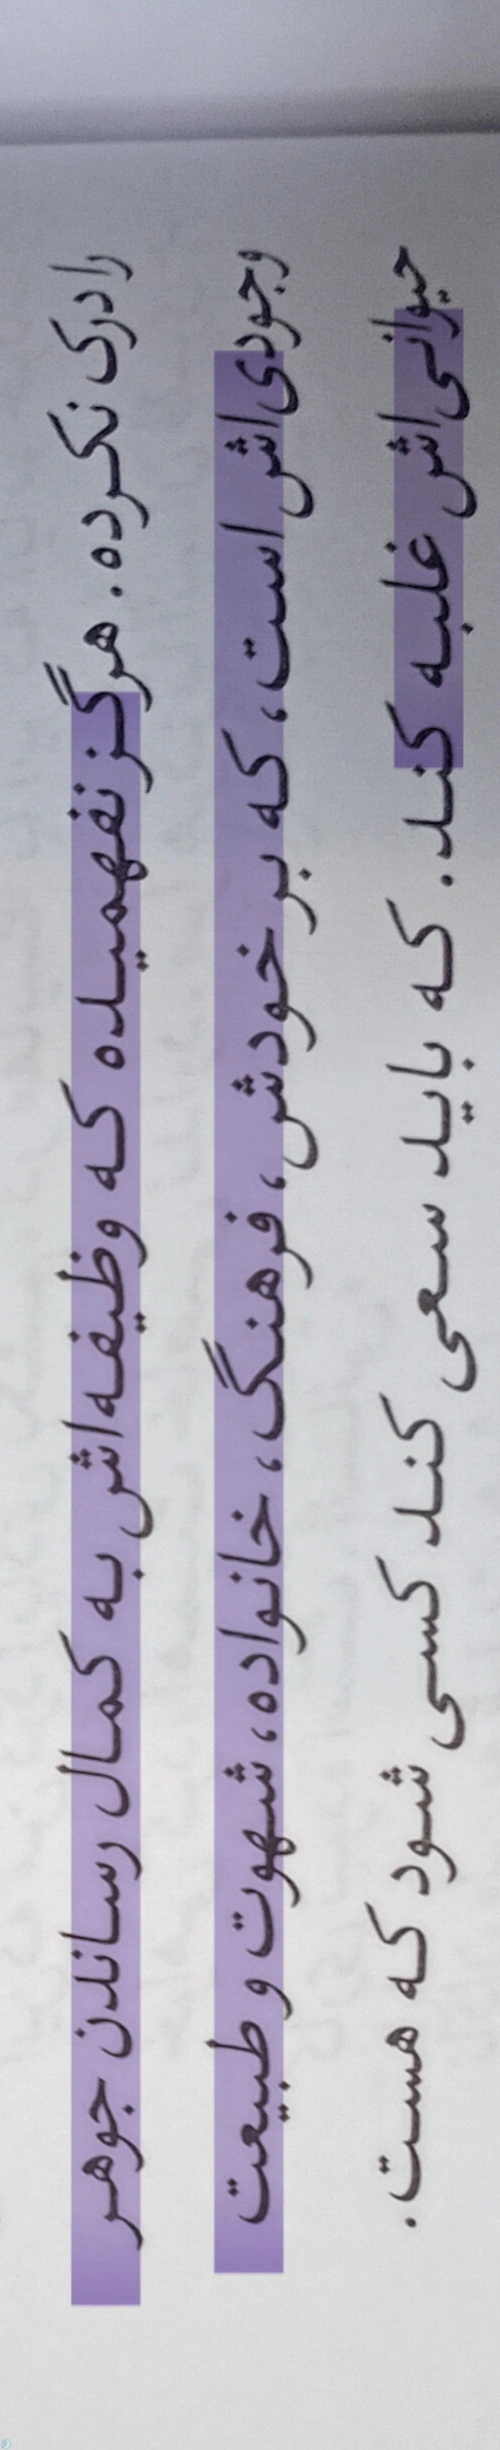 را درک نکرده. هرگز نفهمیده که وظیفه‌اش به کمال رساندن جوهر
وجودی‌اش است، که بر خودش، فرهنگ، خانواده، شهوت و طبیعت
حیوانی‌اش غلبه کند. که باید سعی کند کسی شود که هست.